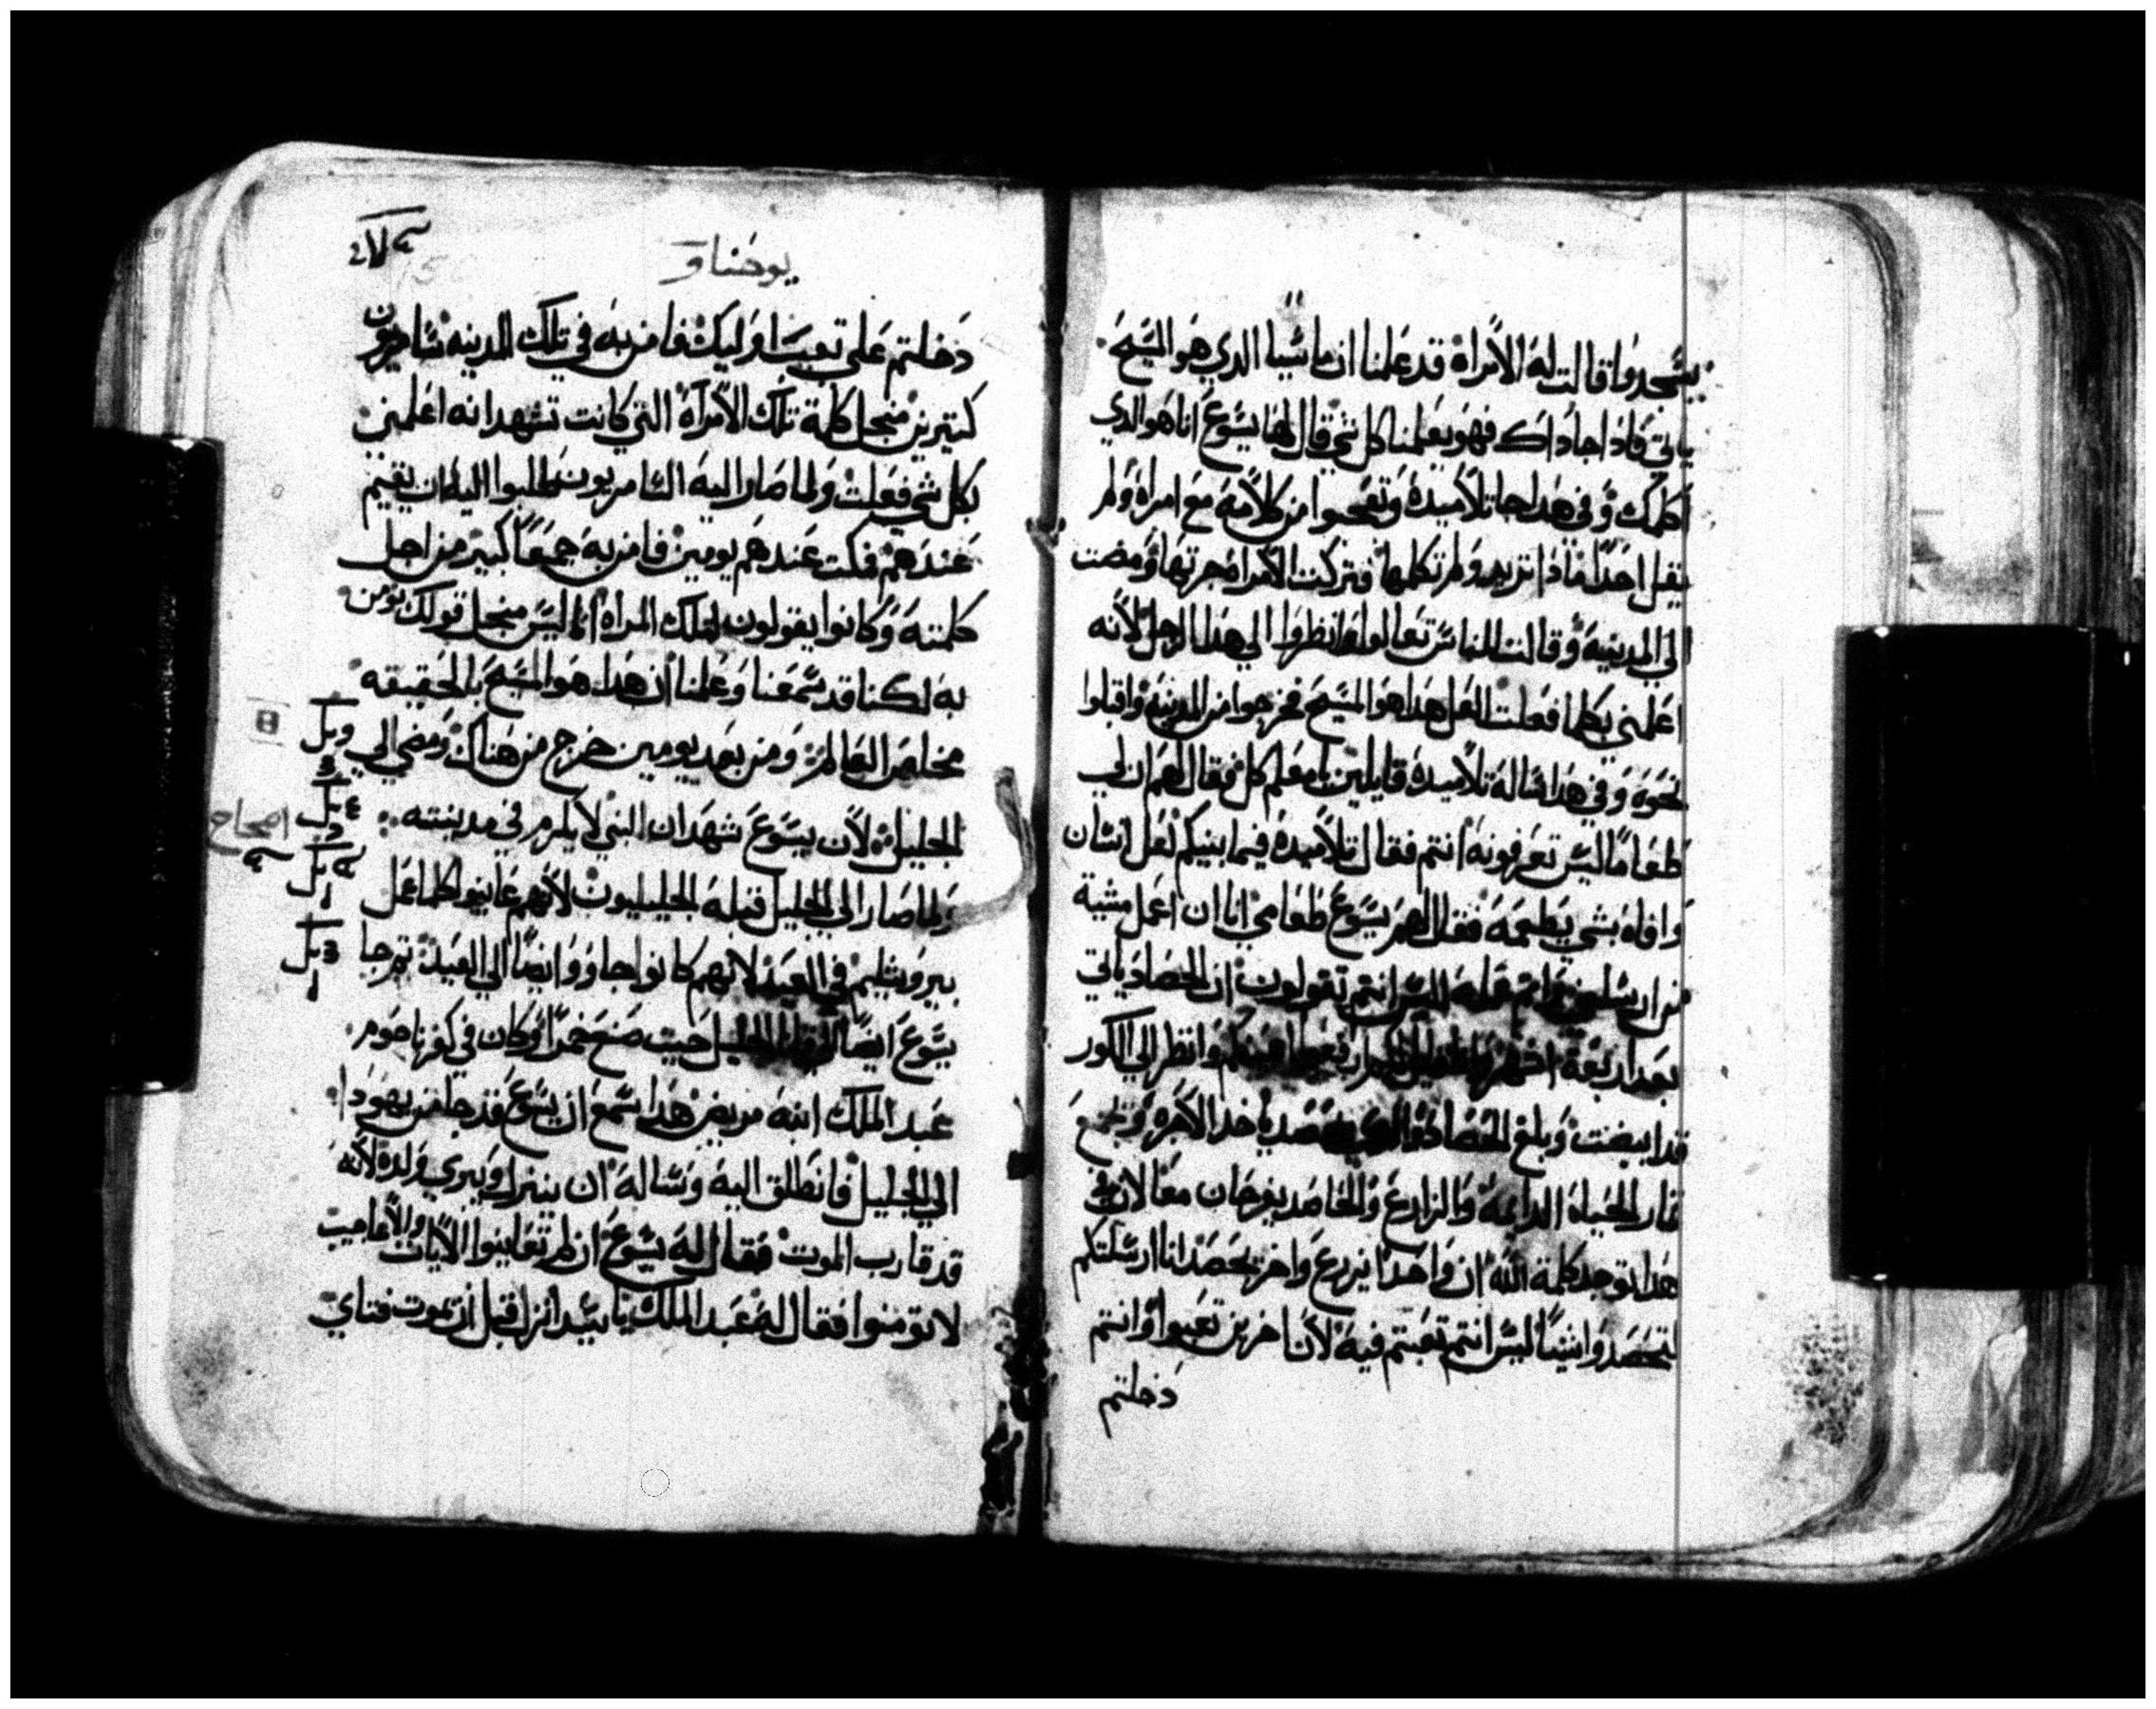 يسجدوا قالت له الامراة قد علمنا ان ماسيا الدي هو المسيح
ياتي فادا جا داك فهو يعلمنا كل شي قال لها يسوع انا هو الدي
اكلمك وفي هدا جا تلاميده وتعجبوا من كلامه مع امراة ولم
يقل احدا مادا تريد ولم تكلمها فتركت الامراة جرتها ومضت
الي المدينة وقالت للناس تعالوا انظروا الي هدا الرجل لانه
اعلمني بكلما فعلت لعل هدا هو المسيح فخرجوا من المدينة واقبلوا
نحوه وفي هدا ساله تلاميده قايلين يا معلم كل فقال لهم ان لي
طعاما ليس تعرفونه انتم فقال تلاميده فيما بينكم لعل انسان
وافاه بشي يطعمه فقال لهم يسوع طعامي انا ان اعمل مشية
من ارسلني واتم عمله اليس انتم تقولون ان الحصاد ياتي
بعد اربعة اشهر وانظر الي الكور
قد ابيضت وبلغ الحصاد والدي يحصد ياخد الاجرة ويجمع
تمار الحياة الدايمة والزارع والحاصد يفرحان معا لان في
هدا توجد كلمة الله ان واحدا يزرع واخر يحصد انا ارسلتكم
لتحصدوا شيا ليس انتم تعبتم فيه لان اخرين تعبوا وانتم
دخلتم
يوحنا و
دخلتم علي تعب اوليك فامن به في تلك المدينه سامريون
كتيرين منجل كلمة تلك الامراة التي كانت تشهد انه اعلمني
بكل شي فعلت ولما صار اليه السامريون طلبوا اليه ان يقيم
عندهم فمكت عندهم يومين فامن به جمعا كبير من اجل
كلمته وكانوا يقولون لتلك المراة انا ليس منجل قولك نومن
به لكنا قد سمعنا وعلمنا ان هدا هو المسيح بالحقيقه
مخلص العالم ومن بعد يومين خرج من هناك ومضي الي
الجليل لان يسوع شهد ان النبي لا يكرم في مدينته
اصحاح
ولما صار الي الجليل قبله الجليليون لانهم عاينوا كلما عمل
بيروشليم في العيد لانهم كانوا جاوو ايضا الي العيد تم جا
يسوع ايضا الي قانا الجليل حيت صنع خمرا وكان في كفرناحوم
عبد الملك ابنه مريض هدا سمع ان يسوع قد جا من يهودا
الي الجليل فانطلق اليه وساله ان ينزل ويبري ولده لانه
قد قارب الموت فقال له يسوع ان لم تعاينوا الايات والاعاجيب
لا تومنوا فقال له عبد الملك يا سيد انزل قبل ان يموت فتاي